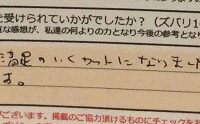 を受けられていかがでしたか？（ズバリ1
な感想が、私達の何よりの力となり今後の参考とな
満足のいくカットになりました
す。
がございます。掲載のご協力頂けるものにチェックをお